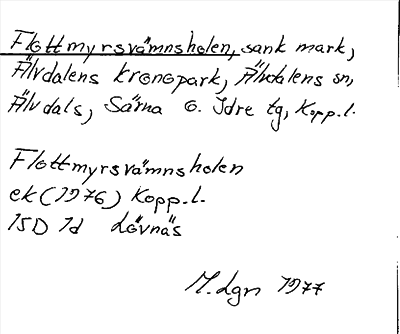 Flottmyrsvämnsholen, sank mark,
Älvdalens kronopark, Älvdalens sn,
Älvdals, Särna o. Idre tg, Kopp.l.
Flottmyrsvämnsholen
ek (1976) Kopp.l.
15D 1d Lövnäs
M. Lgn 1977